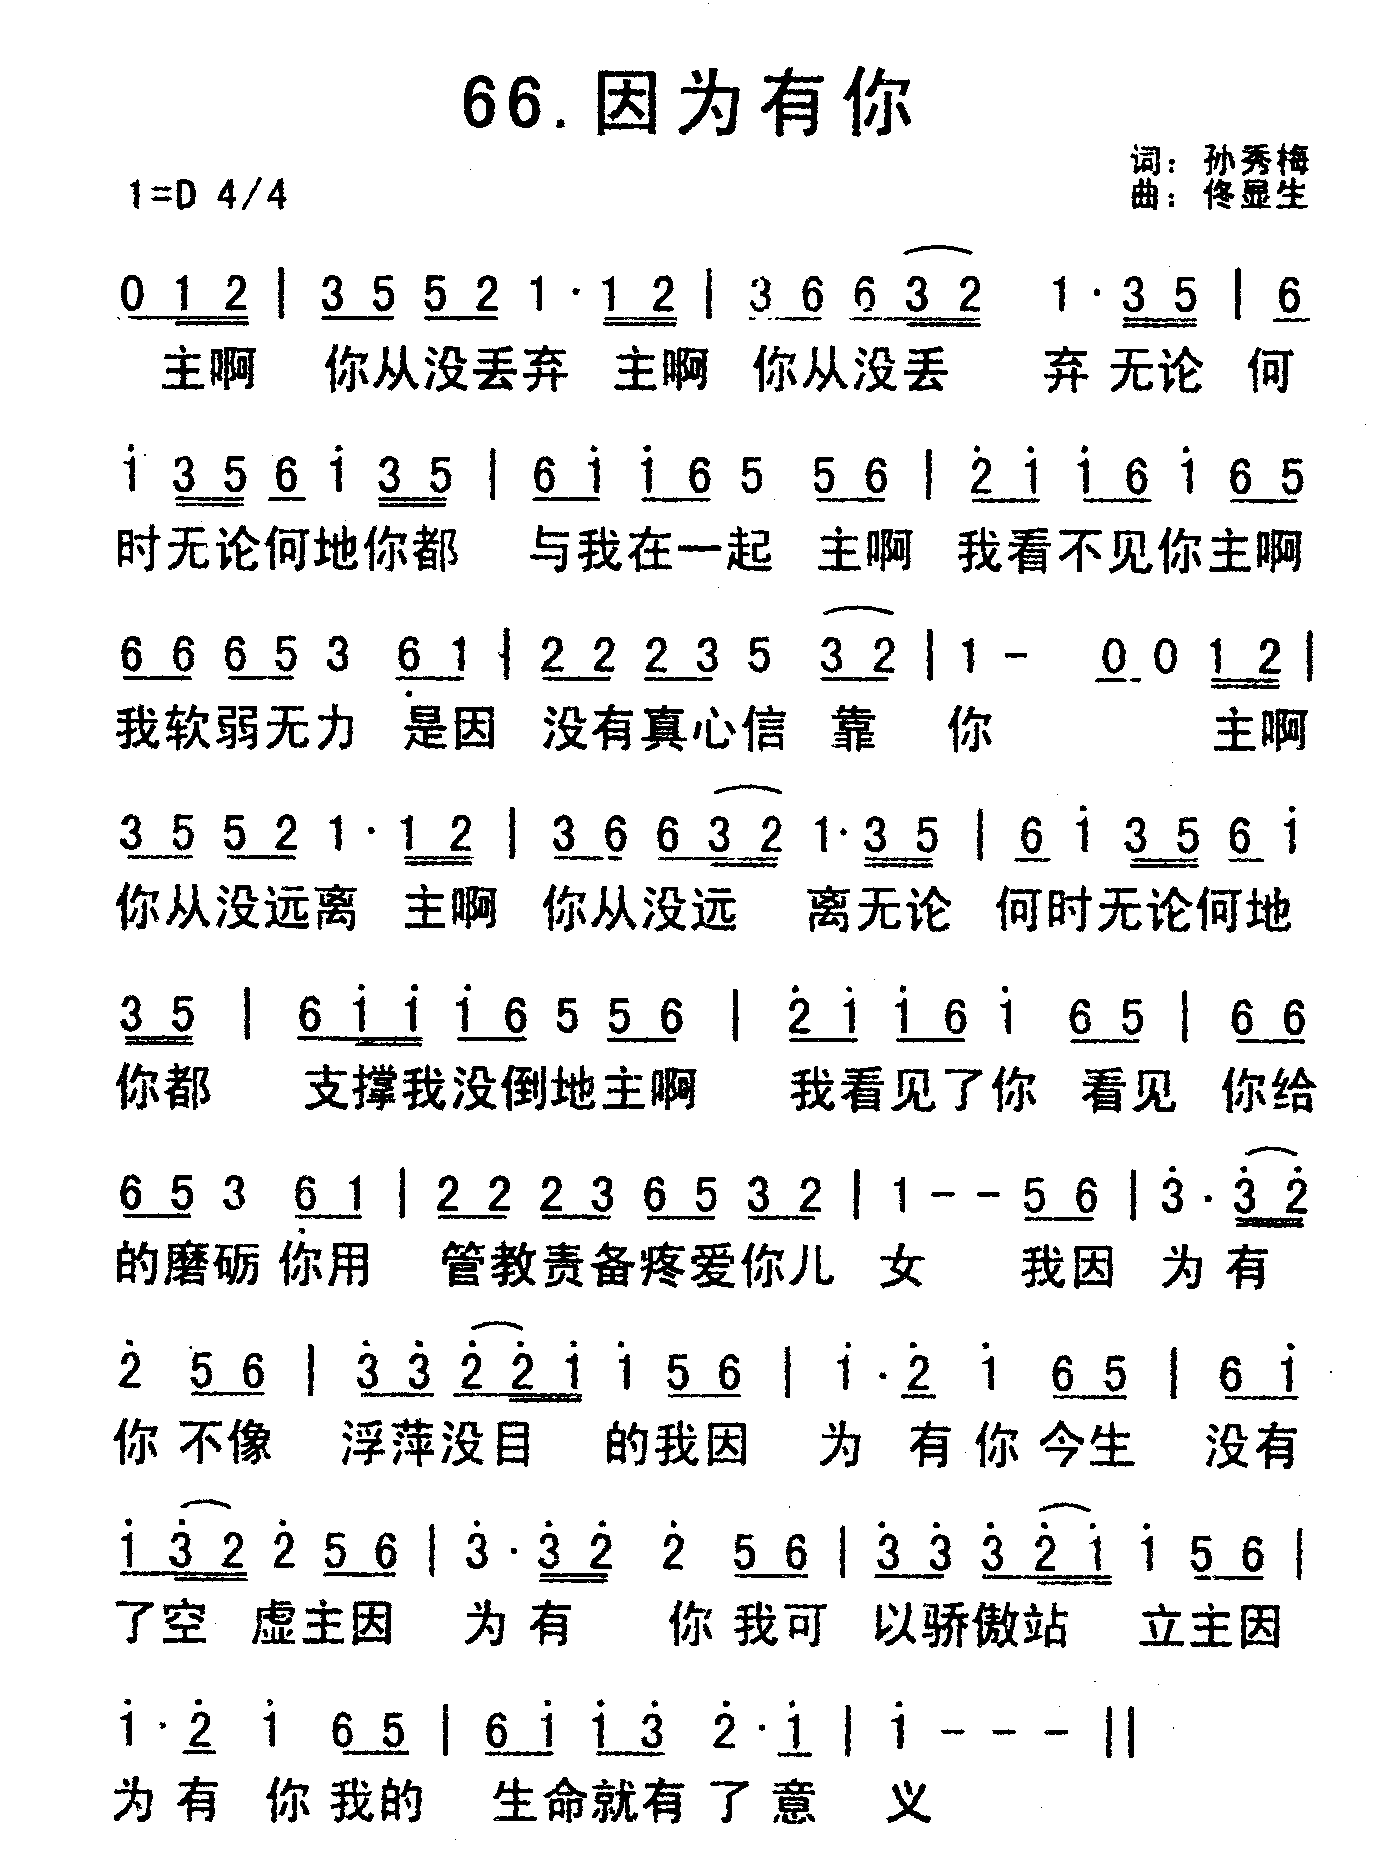 66.因为有你
词：孙秀梅
1=D 4/4
曲：佟显生
0 1 2 | 3 5 5 2 1· 1 2 | 3 6 6 3 2 1· 3 5 | 6
主啊 你从没丢弃 主啊 你从没丢 弃无论 何
i 3 5 6 i 3 5 | 6 i i 6 5 5 6 | 2̇ i i 6 i 6 5
时无论何地你都 与我在一起 主啊 我看不见你主啊
6 6 6 5 3 6̣ 1 | 2 2 2 3 5 3 2 | 1 - 0 0 1 2 |
我软弱无力 是因 没有真心信 靠 你 主啊
3 5 5 2 1· 1 2 | 3 6 6 3 2 1· 3 5 | 6 i 3 5 6 i
你从没远离 主啊 你从没远 离无论 何时无论何地
3 5 | 6 i i i 6 5 5 6 | 2̇ i i 6 i 6 5 | 6 6
你都 支撑我没倒地主啊 我看见了你 看见 你给
6 5 3 6̣ 1 | 2 2 2 3 6 5 3 2 | 1 - - 5 6 | 3̇· 3̇ 2̇
的磨砺 你用 管教责备疼爱你儿 女 我因 为有
2̇ 5 6 | 3̇ 3̇ 2̇ 2̇ i i 5 6 | i· 2̇ i 6 5 | 6 i
你 不像 浮萍没目 的我因 为 有你今生 没有
i 3̇ 2̇ 2̇ 5 6 | 3̇· 3̇ 2̇ 2̇ 5 6 | 3̇ 3̇ 3̇ 2̇ i i 5 6 |
了空 虚主因 为有 你我可 以骄傲站 立主因
i· 2̇ i 6 5 | 6 i i 3̇ 2̇· i | i - - - ||
为有 你我的 生命就有了意 义